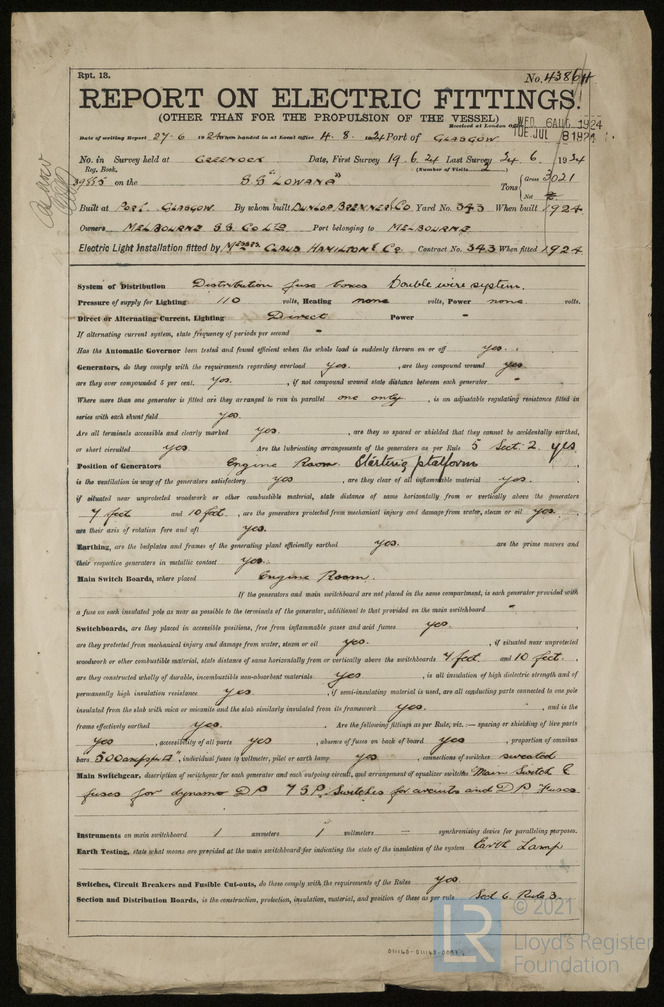 Rpt. 13.
No. 43864
REPORT ON ELECTRIC FITTINGS.
(OTHER THAN FOR THE PROPULSION OF THE VESSEL)
Received at London Office WED. 6 AUG 1924
TUE. JUL 8 1924
Date of writing Report 27-6 1924 When handed in at Local Office 4-8. 1924 Port of GLASGOW
No. in Survey held at GREENOCK Date, First Survey 19.6.24 Last Survey 24.6. 1924
Reg. Book. (Number of Visits 2
39855 on the S.S "LOWANA" Tons { Gross 3021
Net
Built at PORT GLASGOW By whom built DUNLOP BREMNER & Co Yard No. 343 When built 1924
Owners MELBOURNE S.S. CO LTD Port belonging to MELBOURNE
Electric Light Installation fitted by MESSRS CLAUD HAMILTON & Co Contract No. 343 When fitted 1924
System of Distribution Distribution fuse boxes Double wire system.
Pressure of supply for Lighting 110 volts, Heating none volts, Power none volts.
Direct or Alternating Current, Lighting Direct Power -
If alternating current system, state frequency of periods per second -
Has the Automatic Governor been tested and found efficient when the whole load is suddenly thrown on or off yes.
Generators, do they comply with the requirements regarding overload yes. , are they compound wound yes
are they over compounded 5 per cent. yes. , if not compound wound state distance between each generator -
Where more than one generator is fitted are they arranged to run in parallel one only , is an adjustable regulating resistance fitted in
series with each shunt field yes.
Are all terminals accessible and clearly marked yes. , are they so spaced or shielded that they cannot be accidentally earthed,
or short circuited yes. Are the lubricating arrangements of the generators as per Rule 5 Sect. 2. yes
Position of Generators Engine Room. Starting platform
is the ventilation in way of the generators satisfactory yes , are they clear of all inflammable material yes.
if situated near unprotected woodwork or other combustible material, state distance of same horizontally from or vertically above the generators
7 feet and 10 feet. , are the generators protected from mechanical injury and damage from water, steam or oil yes.
are their axis of rotation fore and aft yes.
Earthing, are the bedplates and frames of the generating plant efficiently earthed yes. are the prime movers and
their respective generators in metallic contact yes.
Main Switch Boards, where placed Engine Room.
If the generators and main switchboard are not placed in the same compartment, is each generator provided with
a fuse on each insulated pole as near as possible to the terminals of the generator, additional to that provided on the main switchboard -
Switchboards, are they placed in accessible positions, free from inflammable gases and acid fumes yes. ,
are they protected from mechanical injury and damage from water, steam or oil yes. , if situated near unprotected
woodwork or other combustible material, state distance of same horizontally from or vertically above the switchboards 7 feet and 10 feet. ,
are they constructed wholly of durable, incombustible non-absorbent materials yes , is all insulation of high dielectric strength and of
permanently high insulation resistance yes. , if semi-insulating material is used, are all conducting parts connected to one pole
insulated from the slab with mica or micanite and the slab similarly insulated from its framework yes. , and is the
frame effectively earthed yes. Are the following fittings as per Rule, viz.:— spacing or shielding of live parts
yes , accessibility of all parts yes , absence of fuses on back of board yes , proportion of omnibus
bars 500 amps per □" , individual fuses to voltmeter, pilot or earth lamp yes , connections of switches sweated
Main Switchgear, description of switchgear for each generator and each outgoing circuit, and arrangement of equalizer switches Main Switch &
fuses for dynamo D.P. 7 S.P. Switches for circuits and D.P. Fuses.
Instruments on main switchboard 1 ammeters 1 voltmeters — synchronising device for paralleling purposes.
Earth Testing, state what means are provided at the main switchboard for indicating the state of the insulation of the system Earth Lamp
Switches, Circuit Breakers and Fusible Cut-outs, do these comply with the requirements of the Rules yes.
Section and Distribution Boards, is the construction, protection, insulation, material, and position of these as per rule Sect 6. Rule 3.
LR
© 2021
Lloyd's Register
Foundation